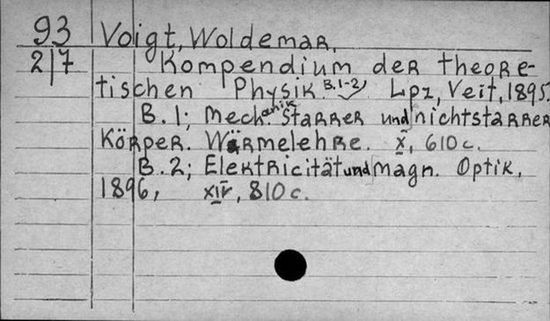 93 Voigt, Woldemar.
2/7 Kompendium der theore-
tischen Physik B.1-2 Lpz, Veit, 1895.
B. 1; Mechanik starrer und nichtstarrer
Körper. Wärmelehre. X, 610 c.
B. 2; Elektricität und Magn. Optik,
1896, XIV, 810 c.